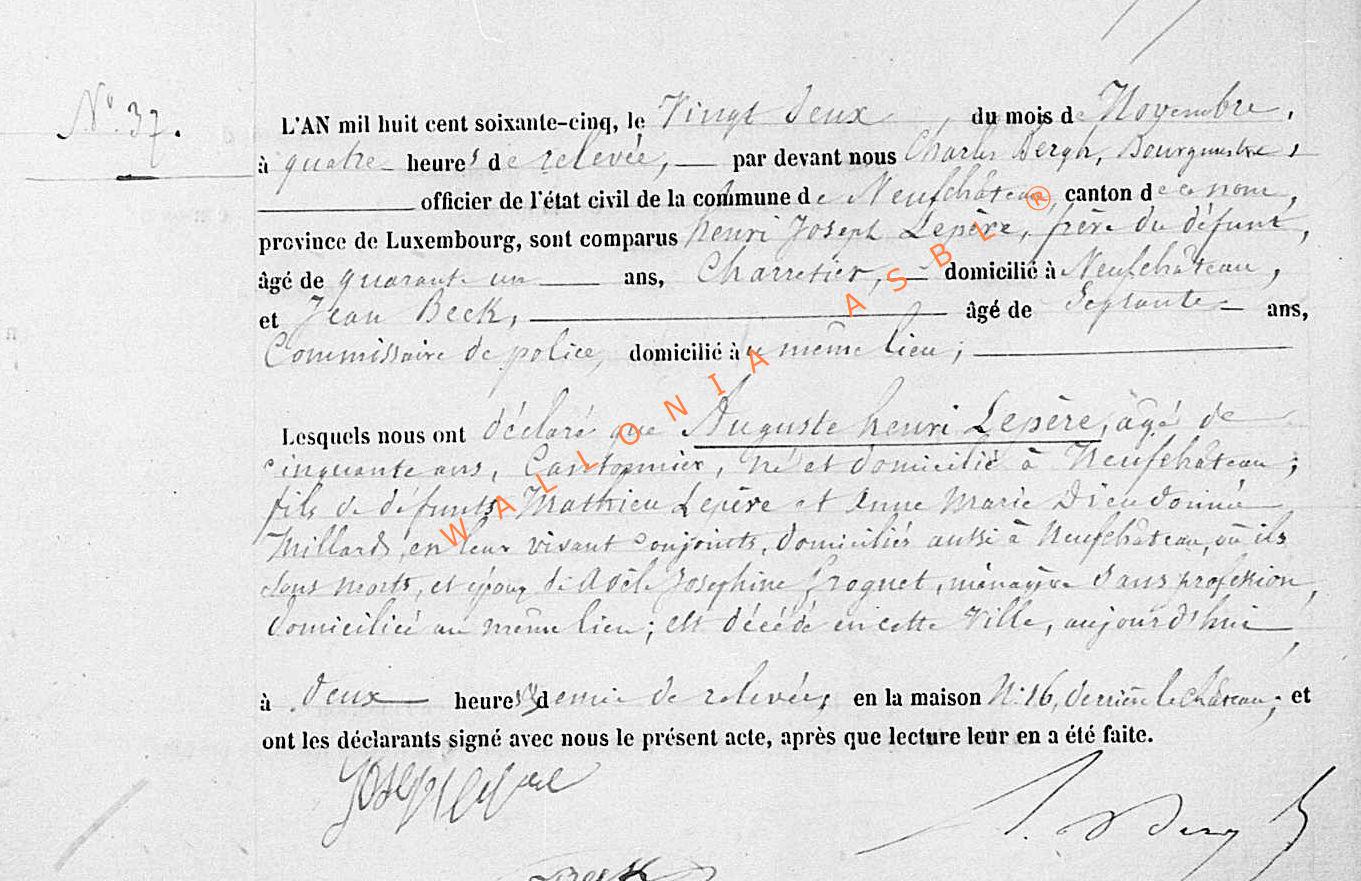 N° 37.
L'AN mil huit cent soixante-cinq, le Vingt deux, du mois de Novembre,
à quatre heures de relevée, par devant nous Charles Bergh, Bourgmestre,
officier de l'état civil de la commune de Neufchâteau, canton de ce nom,
province de Luxembourg, sont comparus henri Joseph Lepère, frère du défunt,
âgé de quarante un ans, Charretier, domicilié à Neufchâteau,
et Jean Beck, âgé de Septante ans,
Commissaire de police, domicilié au même lieu;
Lesquels nous ont déclaré que Auguste henri Lepère, âgé de
cinquante ans, Cantonnier, né et domicilié à Neufchâteau;
fils de défunts Mathieu Lepère et Anne Marie Dieudonnée
Millard, en leur vivant conjoints, domiciliés aussi à Neufchâteau, où ils
sont morts, et époux de Adèle Josephine Froguet, ménagère sans profession,
domiciliée au même lieu; est décédé en cette Ville, aujourd'hui
à deux heures demie de relevée, en la maison N° 16, derrière le château; et
ont les déclarants signé avec nous le présent acte, après que lecture leur en a été faite.
Joseph Lepere
Bergh
Beck
WALLONIA ASBL ®